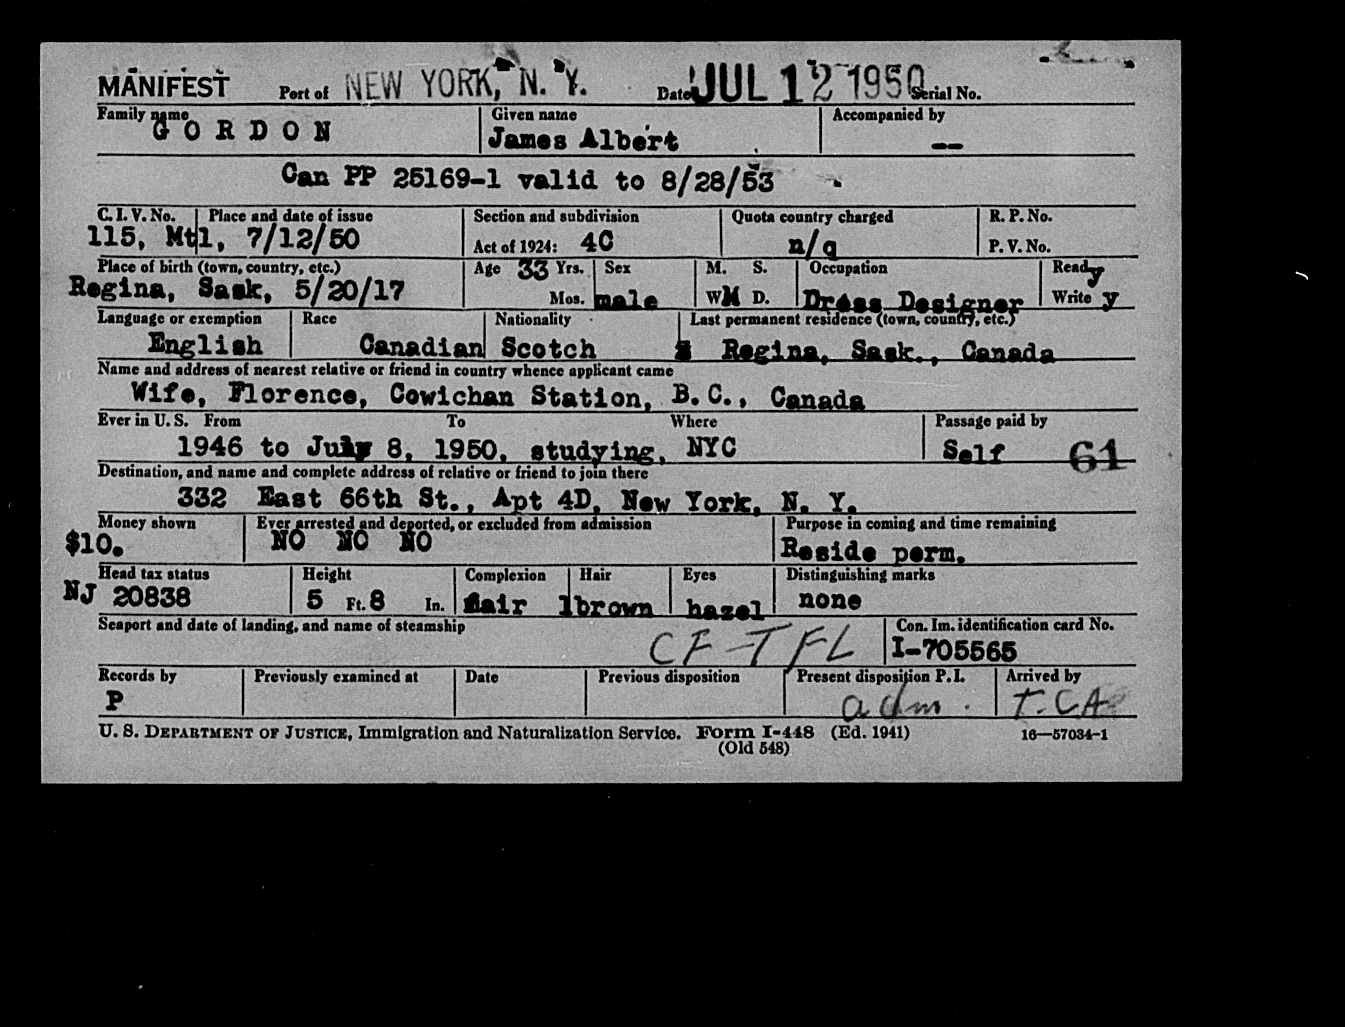 MANIFEST Port of NEW YORK, N. Y. Date JUL 12 1950 Serial No.
Family name Given name Accompanied by
GORDON James Albert --
Can PP 25169-1 valid to 8/28/53
C. I. V. No. Place and date of issue Section and subdivision Quota country charged R. P. No.
115, Mtl, 7/12/50 Act of 1924: 4C n/q P. V. No.
Place of birth (town, country, etc.) Age 33 Yrs. Sex M. S. Occupation Read y
Regina, Sask, 5/20/17 Mos. male W D. Dress Designer Write y
Language or exemption Race Nationality Last permanent residence (town, country, etc.)
English Canadian Scotch Regina, Sask., Canada
Name and address of nearest relative or friend in country whence applicant came
Wife, Florence, Cowichan Station, B. C., Canada
Ever in U. S. From To Where Passage paid by
1946 to July 8, 1950, studying, NYC Self 61
Destination, and name and complete address of relative or friend to join there
332 East 66th St., Apt 4D, New York, N. Y.
Money shown Ever arrested and deported, or excluded from admission Purpose in coming and time remaining
$10. NO NO NO Reside perm.
Head tax status Height Complexion Hair Eyes Distinguishing marks
NJ 20838 5 Ft. 8 In. fair lbrown hazel none
Seaport and date of landing, and name of steamship Con. Im. identification card No.
CF-TFL I-705565
Records by Previously examined at Date Previous disposition Present disposition P. I. Arrived by
P adm. T.C.A.
U. S. DEPARTMENT OF JUSTICE, Immigration and Naturalization Service. Form I-448 (Ed. 1941) 16—57034-1
(Old 548)